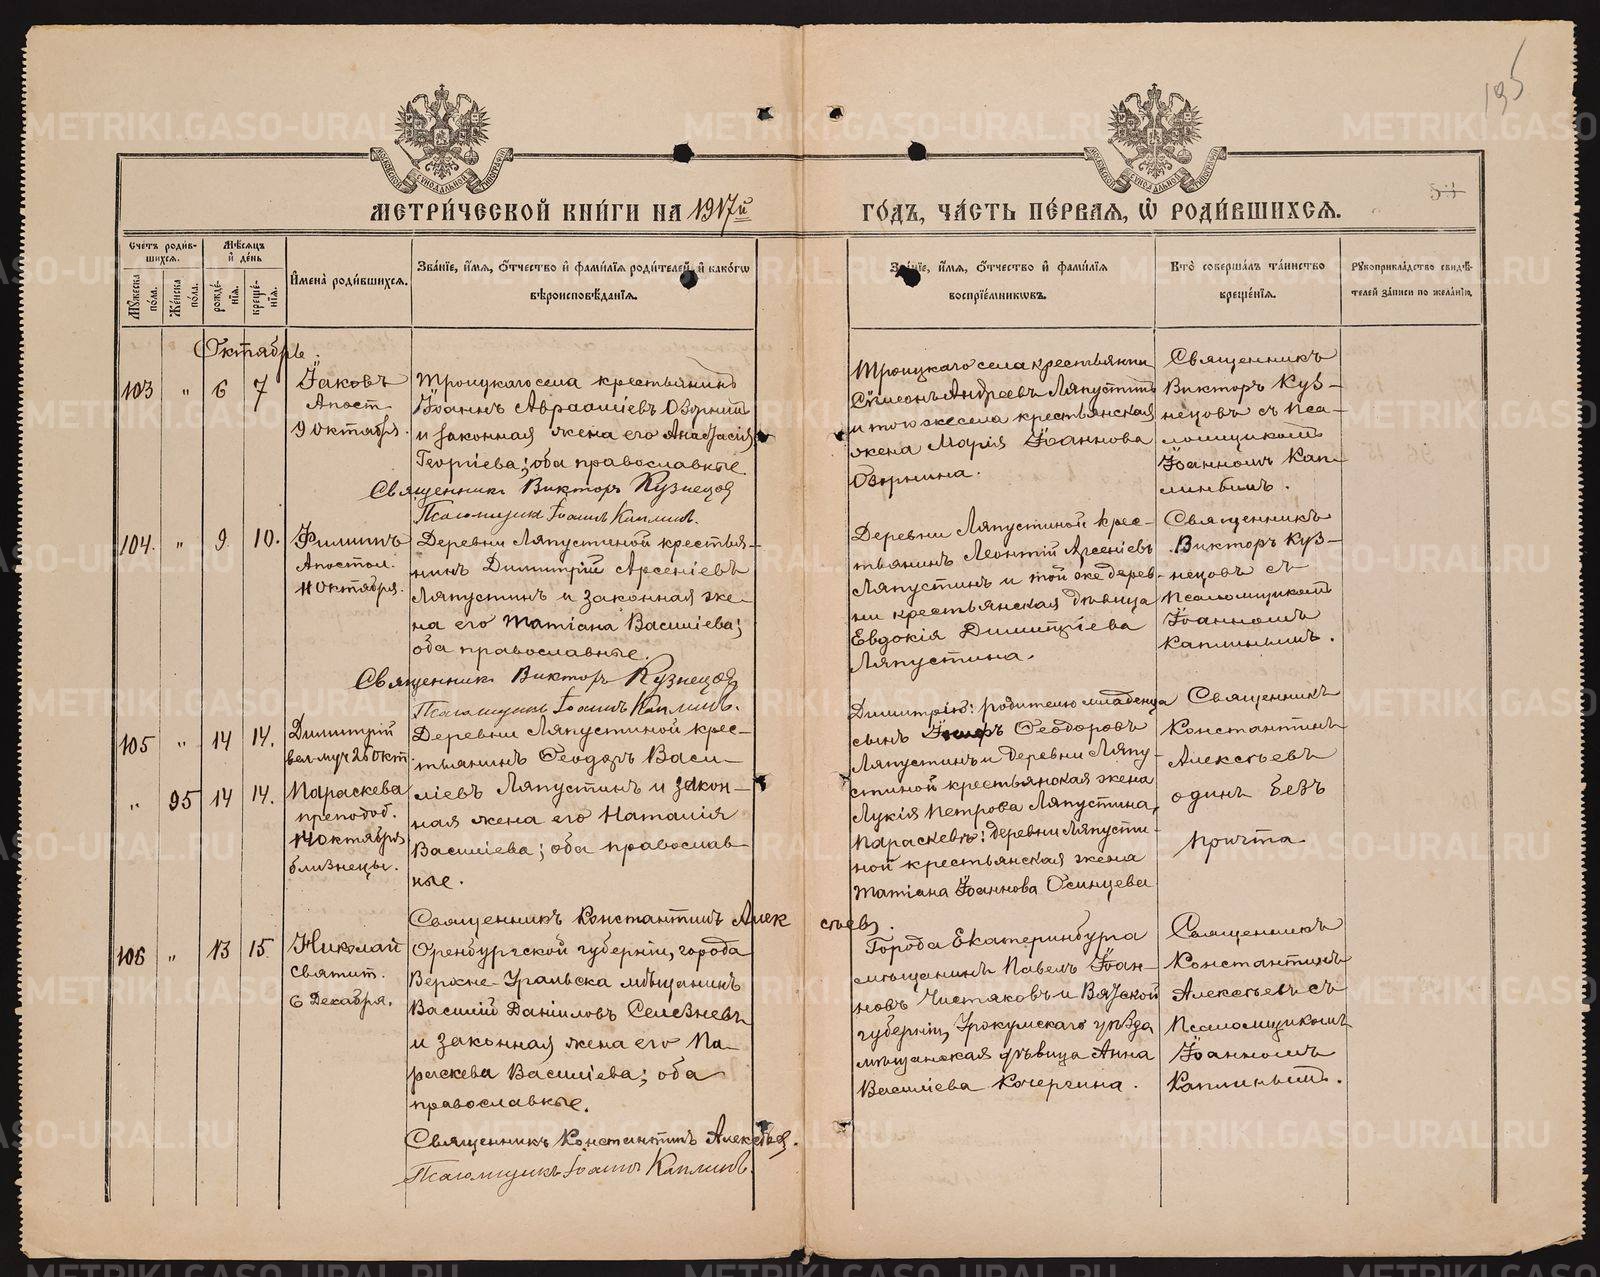 195
МОСКОВСКОЙ СѴНОДАЛЬНОЙ ТИПОГРАФІИ
МОСКОВСКОЙ СѴНОДАЛЬНОЙ ТИПОГРАФІИ
МЕТРИ́ЧЕСКОЙ КНИ́ГИ НА 1917й
ГО́ДЪ, ЧА́СТЬ ПЕ́РВАЯ, Ѡ РОДИ́ВШИХСЯ.
Счетъ родив-
шихся.
Мѣсяцъ
и день
Мужеска пола.
Женска пола.
рожде-
нія.
креще-
нія.
Имена родившихся.
Званіе, имя, отчество и фамилія родителей, и какогѡ
вѣроисповѣданія.
Званіе, имя, отчество и фамилія
воспріемниковъ.
Кто совершалъ таинство
крещенія.
Рукоприкладство свидѣ-
телей записи по желанію.
Октябрь.
103 " 6 7
Іаковъ
Апост.
9 Октября.
Троицкаго села крестьянинъ
Іоаннъ Авраамiевъ Озорнинъ
и законная жена его Анастасія
Георгіева; оба православные.
Священникъ Викторъ Кузнецов
Псаломщикъ Іоаннъ Каплинъ.
Троицкаго села крестьянин
Сѵмеонъ Андреевъ Ляпустинъ
и того же села крестьянская
жена Марія Іоаннова
Озорнина.
Священникъ
Викторъ Куз-
нецовъ съ Пса-
ломщикомъ
Іоанномъ Кап-
линымъ.
104. " 9 10.
Филиппъ
Апостол.
11 Октября.
Деревни Ляпустиной крестья-
нинъ Димитрій Арсеніевъ
Ляпустинъ и законная же-
на его Татіана Василіева;
оба православные.
Священникъ Викторъ Кузнецов
Псаломщикъ Іоаннъ Каплинъ.
Деревни Ляпустиной крес-
тьянинъ Леонтій Арсеніевъ
Ляпустинъ и той же дерев-
ни крестьянская дѣвица
Евдокія Димитріева
Ляпустина.
Священникъ
Викторъ Куз-
нецовъ съ
Псаломщикомъ
Іоанномъ
Каплинымъ.
105 " 14 14.
Димитрій
вел-муч 26 Окт.
" 95 14 14.
Параскева
преподоб.
14 Октября
близнецы.
Деревни Ляпустиной крес-
тьянинъ Ѳеодоръ Васи-
ліевъ Ляпустинъ и закон-
ная жена его Наталія
Василіева; оба православ-
ные.
Священникъ Константинъ Алексѣевъ.
Димитрію: родителю младенца
сынъ Ѳеодоровъ
Ляпустинъ и деревни Ляпу-
стиной крестьянская жена
Лукія Петрова Ляпустина,
Параскевѣ: деревни Ляпусти-
ной крестьянская жена
Татіана Іоаннова Осинцева
Священникъ
Константинъ
Алексѣевъ
одинъ безъ
причта
106 " 13 15.
Николай
святит.
6 Декабря.
Оренбургской губерніи, города
Верхне-Уральска мѣщанинъ
Василій Даніиловъ Селезневъ
и законная жена его Па-
раскева Василіева; оба
православные.
Священникъ Константинъ Алексѣев.
Псаломщикъ Іоаннъ Каплинъ.
Города Екатеринбурга
мѣщанинъ Павелъ Іоан-
новъ Чистяковъ и Вятской
губерніи, Уржумскаго уѣзда
мѣщанская дѣвица Анна
Василіева Кочергина.
Священникъ
Константинъ
Алексѣевъ съ
Псаломщикомъ
Іоанномъ
Каплинымъ.
METRIKI.GASO-URAL.RU